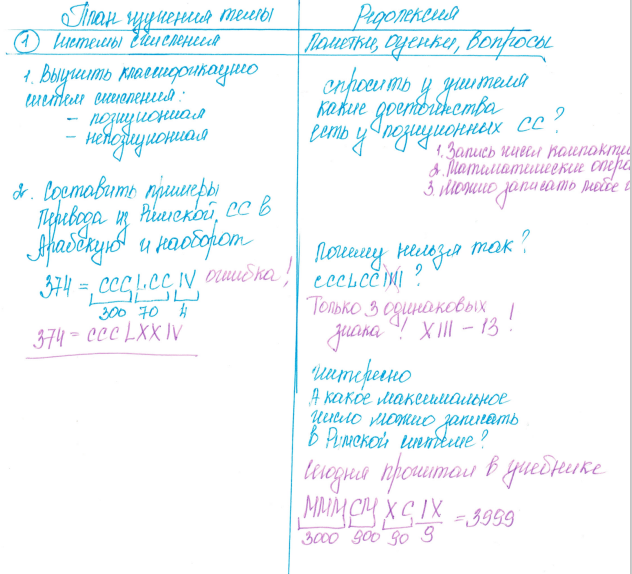 План изучения темы
Рефлексия
① Системы счисления
Пометки, оценки, вопросы
1. Выучить классификацию
систем счисления:
– позиционная
– непозиционная
2. Составить примеры
Перевода из Римской СС в
Арабскую и наоборот
374 = CCCLCCIV ошибка!
300 70 4
374 = CCCLXXIV
спросить у учителя
какие достоинства
есть у позиционных СС?
1. Запись чисел компактн
2. Математические опера
3 можно записать любое
Почему нельзя так?
CCCLCCIIII?
Только 3 одинаковых
знака! XIII – 13!
интересно
А какое максимальное
число можно записать
в Римской системе?
Сегодня прочитал в учебнике
MMM CM XC IX = 3999
3000 900 90 9